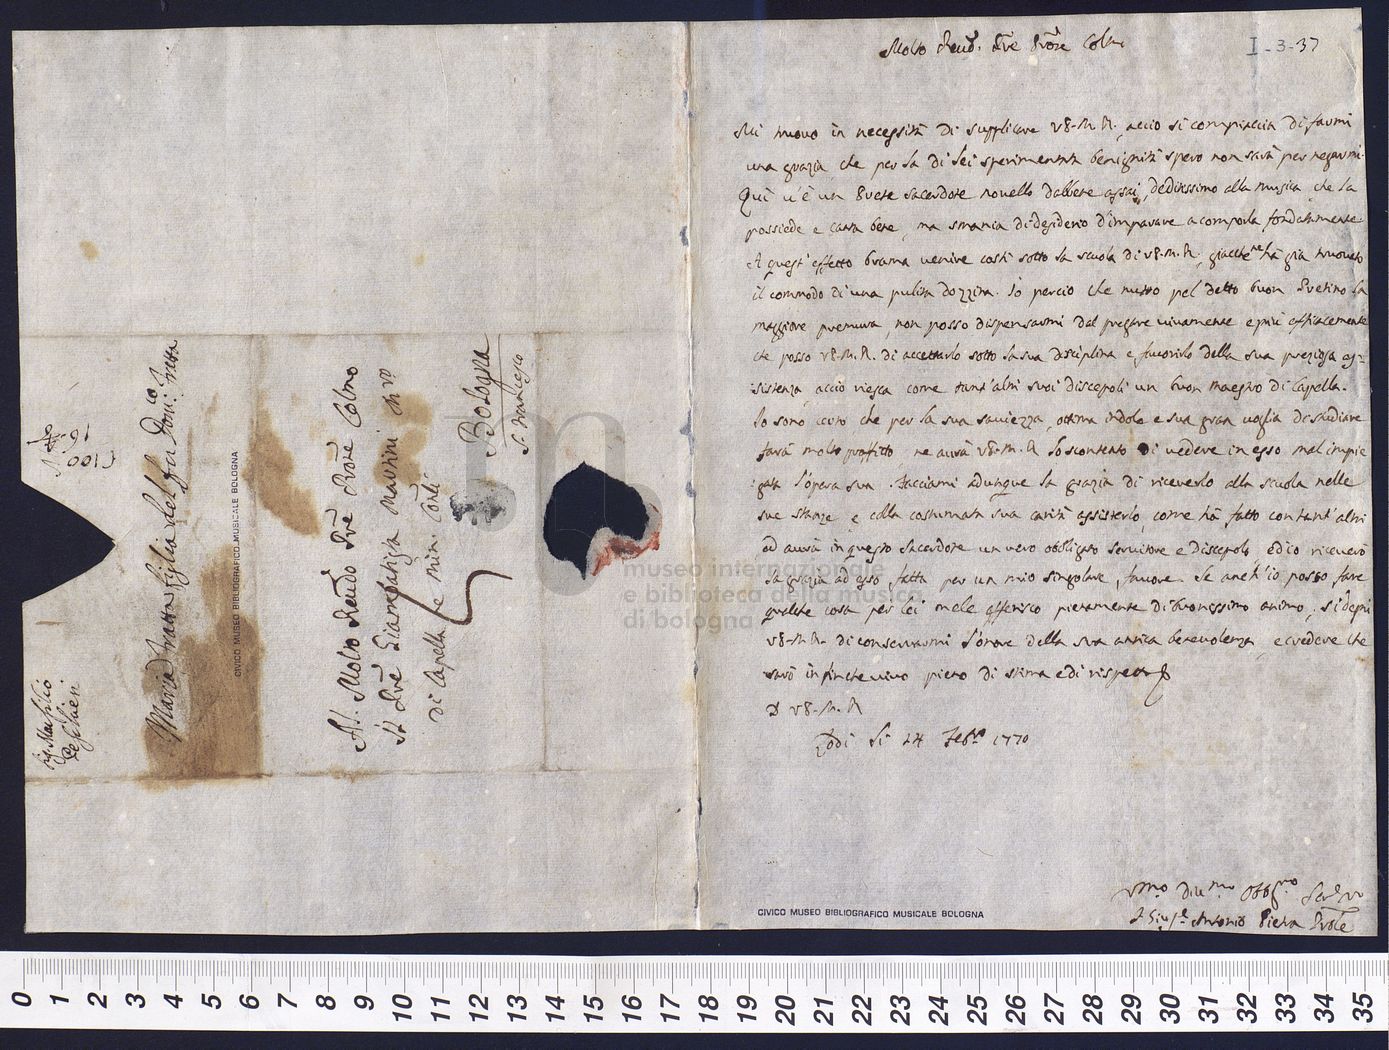 I-3-37
Molto Reud. Pre Prone Colmo
Mi truovo in necessità di supplicare V.S.M.R. acciò si compiaccia di farmi
una grazia, che per la di lei sperimentata benignità spero non sarà per negarmi.
Qui v'è un Prete sacerdote novello dabbene assai, deditissimo alla musica, che la
possiede e canta bene, ma smania di desiderio d'imparare a comporla fondatamente.
A quest'effetto brama venire costì sotto la scuola di V.S.M.R., giacchè ne ha già truovato
il commodo di una pulita dozzina. Io perciò che nutro pel detto buon Pretino la
maggiore premura, non posso dispensarmi dal pregare vivamente e più efficacemente
che posso V.S.M.R. di accettarlo sotto la sua disciplina e favorirlo della sua preziosa as=
sistenza, acciò riesca come tant'altri suoi discepoli un buon maestro di Capella.
Io sono certo che per la sua saviezza, ottima indole e sua gran voglia di studiare
farà molto profitto ne aurà V.S.M.R. lo scontento di vedere in esso mal impie
gata l'opera sua. Facciami adunque la grazia di riceverlo alla scuola nelle
sue stanze, e colla costumata sua carità assisterlo, come ha fatto con tant'altri
ed aurà in questo sacerdote un vero obbligato servitore e Discepolo ed io riceverò
la grazia ad esso fatta per un mio singolare favore. Se anch'io posso fare
qualche cosa per lei mele offerisco pienamente di buonissimo animo, si degni
V.S.M.R. di conservarmi l'onore della sua antica benevolenza, e credere che
sarò in finche vivo pieno di stima e di rispetto
D V.S.M.R.
Lodi li 24 Febro 1770
Umo Divmo Obbgmo Servo
F. Giuspe Antonio Piena Prole
CIVICO MUSEO BIBLIOGRAFICO MUSICALE BOLOGNA
Al Molto Reudo Pre Prone Colmo
Il Pre Giambatista Martini Mro
di Capella de Min. Conli
Bologna
S. Francesco
Maria Fratta figlia del fu Domco Fratta
CIVICO MUSEO BIBLIOGRAFICO MUSICALE BOLOGNA
museo internazionale
e biblioteca della musica
di bologna
0 1 2 3 4 5 6 7 8 9 10 11 12 13 14 15 16 17 18 19 20 21 22 23 24 25 26 27 28 29 30 31 32 33 34 35